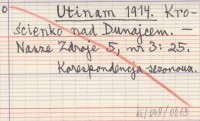 Utinam 1914. Kro-
ścienko nad Dunajcem. —
Nasze Zdroje 5, nr 3: 25.
Korespondencja sezonowa.